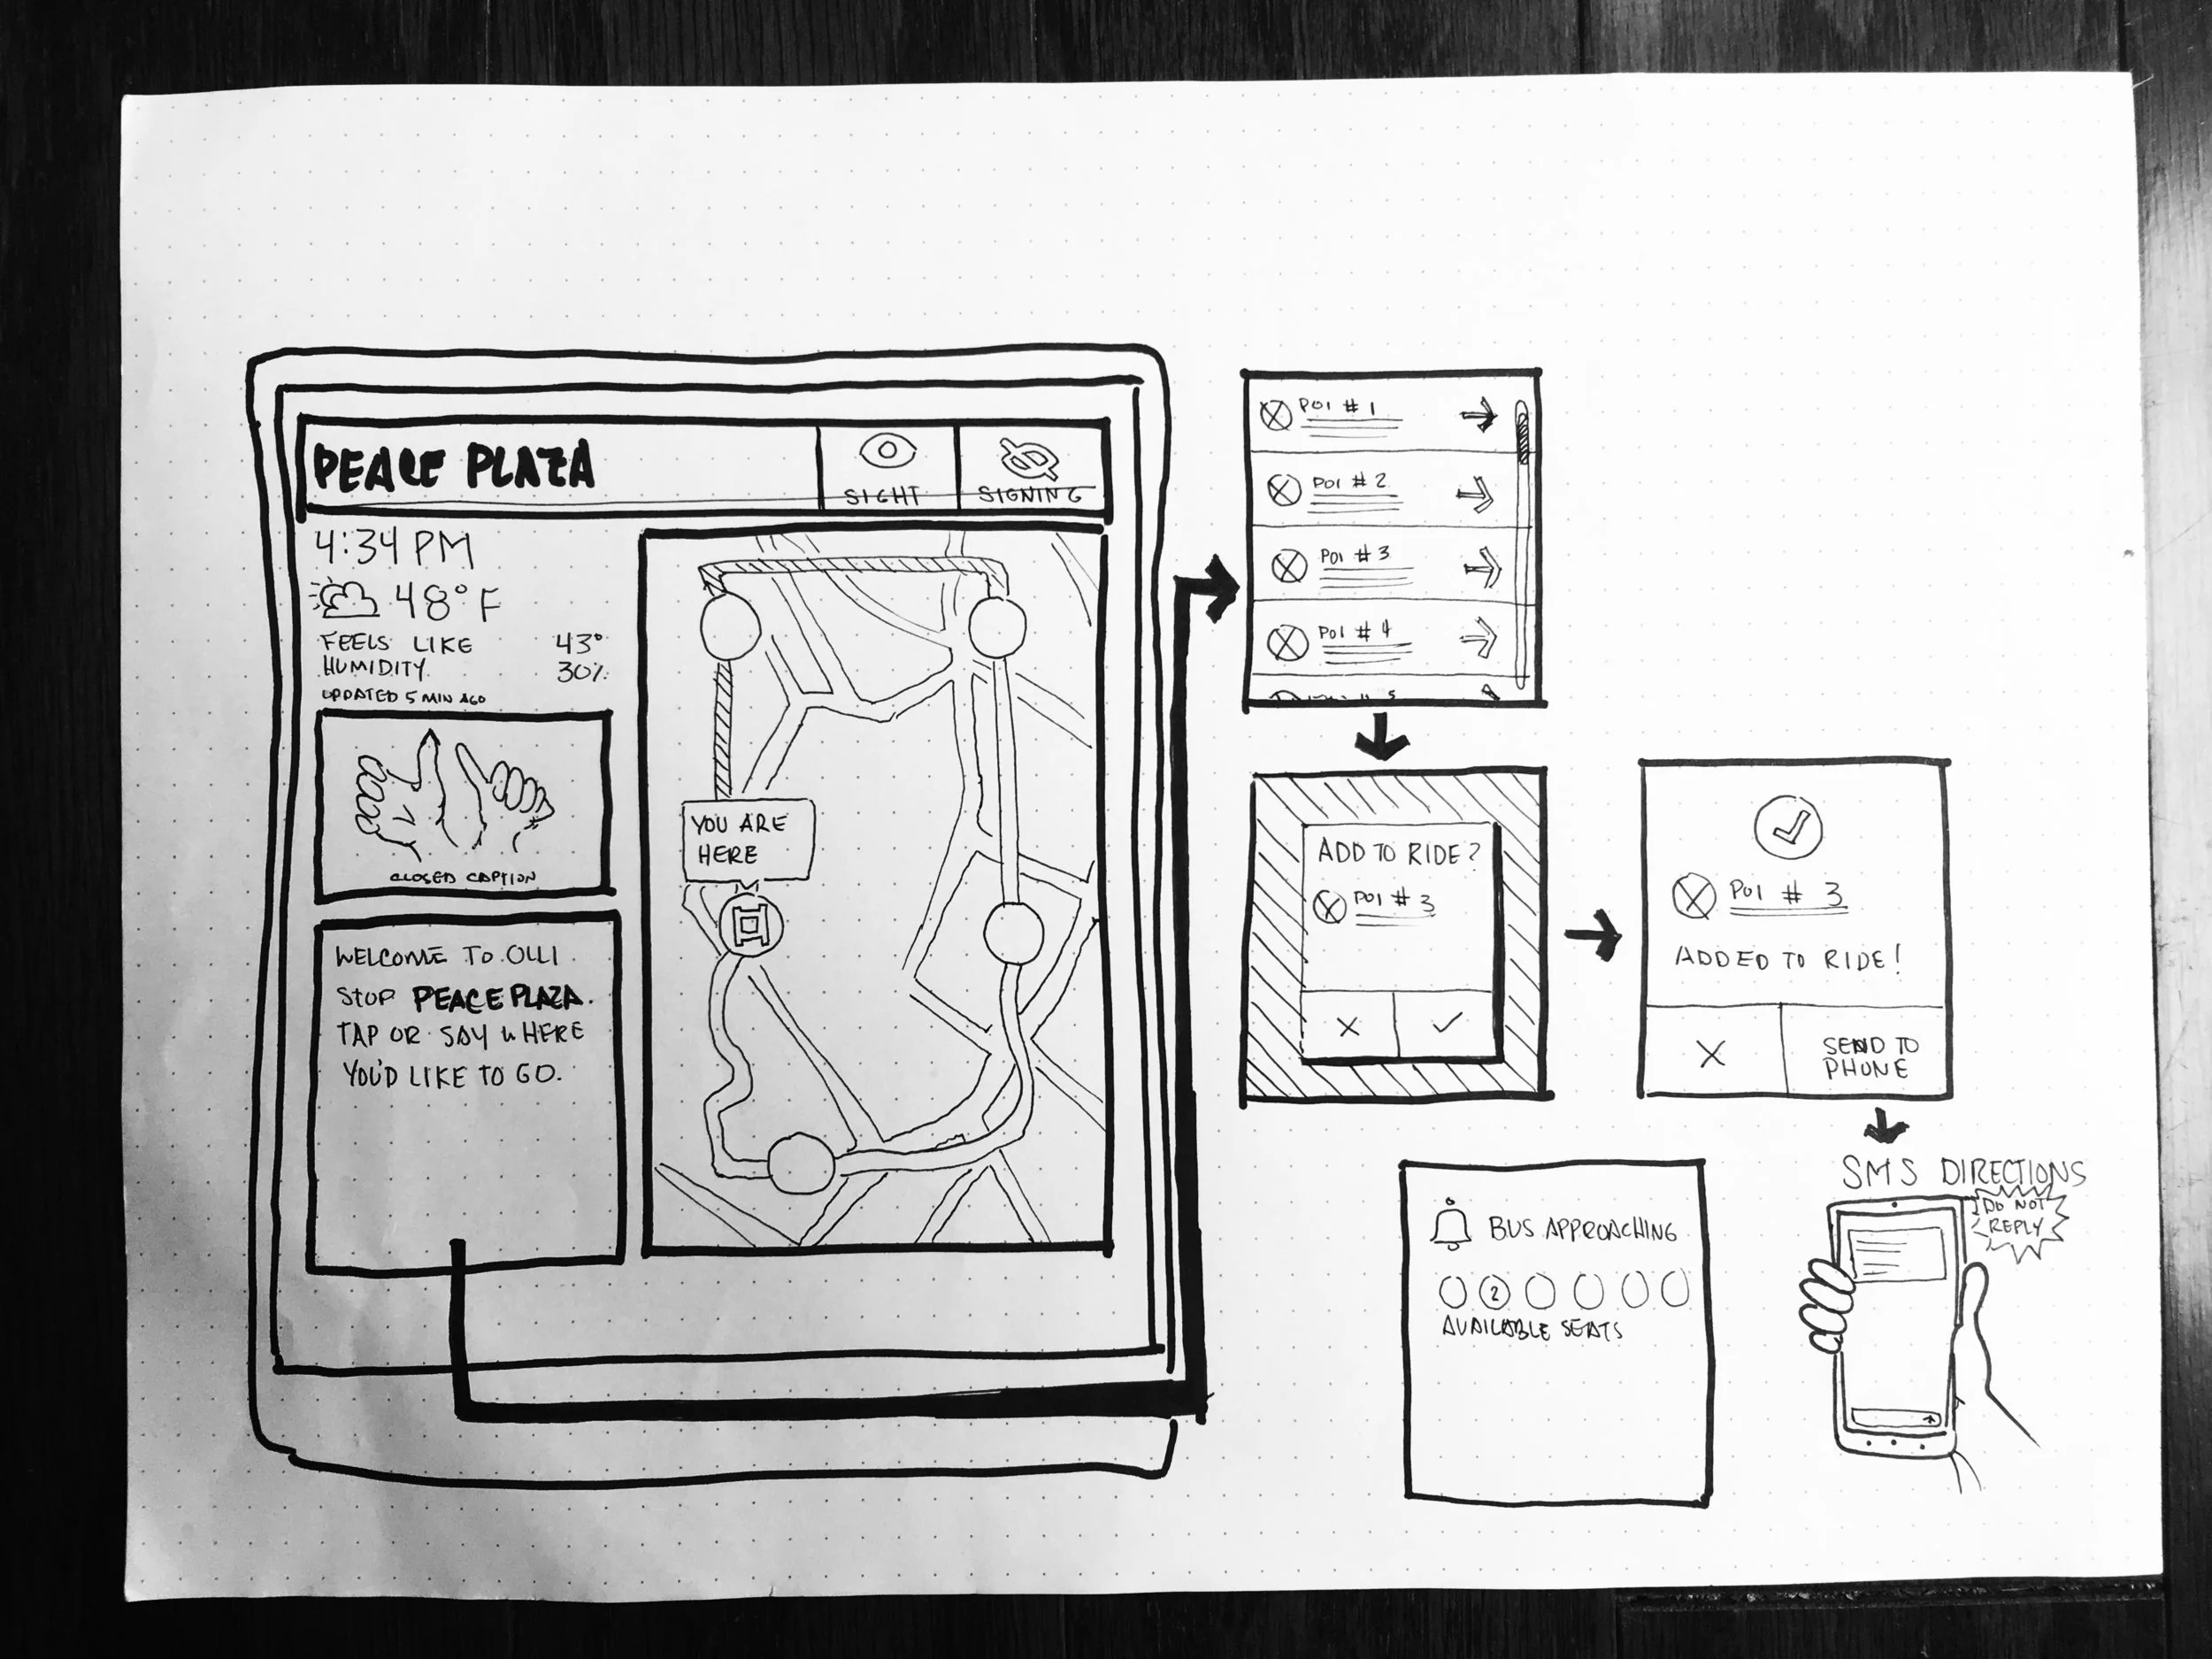 PEACE PLAZA
SIGHT
SIGNING
4:34 PM
48°F
FEELS LIKE 43°
HUMIDITY 30%
UPDATED 5 MIN AGO
CLOSED CAPTION
WELCOME TO OLLI
STOP PEACE PLAZA.
TAP OR SAY WHERE
YOU'D LIKE TO GO.
YOU ARE
HERE
POI # 1
POI # 2
POI # 3
POI # 4
ADD TO RIDE?
POI # 3
POI # 3
ADDED TO RIDE!
SEND TO
PHONE
BUS APPROACHING
2
AVAILABLE SEATS
SMS DIRECTIONS
DO NOT
REPLY